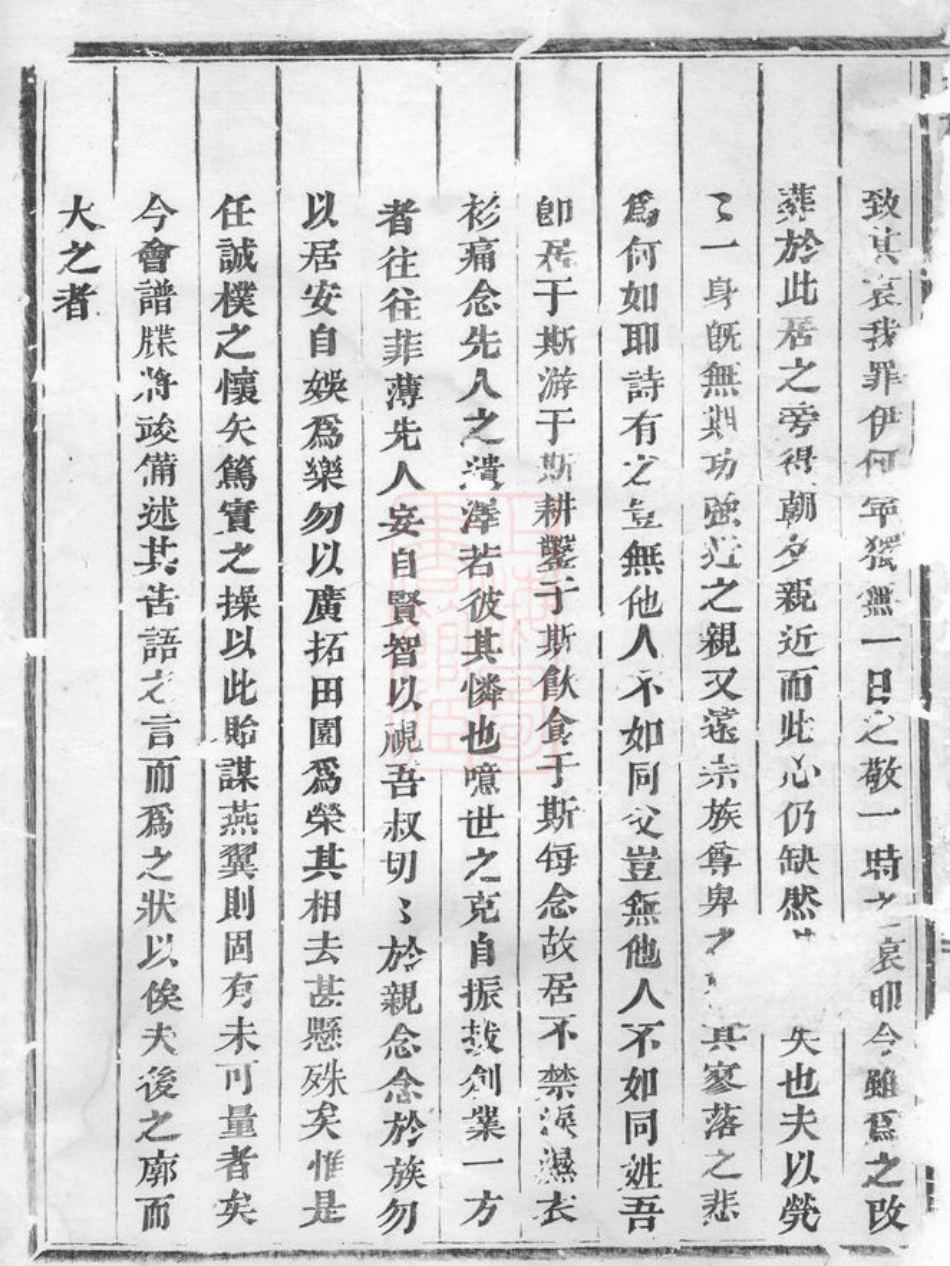 致其哀我罪伊何年獨無一日之敬一時之哀耶今雖爲之改
葬於此居之旁得朝夕親近而此心仍缺然矣也夫以煢
〻一身旣無期功強近之親又遠宗族尊卑之其寥落之悲
爲何如耶詩有之豈無他人不如同父豈無他人不如同姓吾
卽居于斯游于斯耕鑿于斯飲食于斯每念故居不禁淚濕衣
衫痛念先人之遺澤若彼其憐也噫世之克自振拔創業一方
者往往菲薄先人妄自賢智以視吾叔切〻於親念念於族勿
以居安自娛爲樂勿以廣拓田園爲榮其相去甚懸殊矣惟是
任誠樸之懷矢篤實之操以此貽謀燕翼則固有未可量者矣
今會譜牒將竣備述其告語之言而爲之狀以俟夫後之廓而
大之者